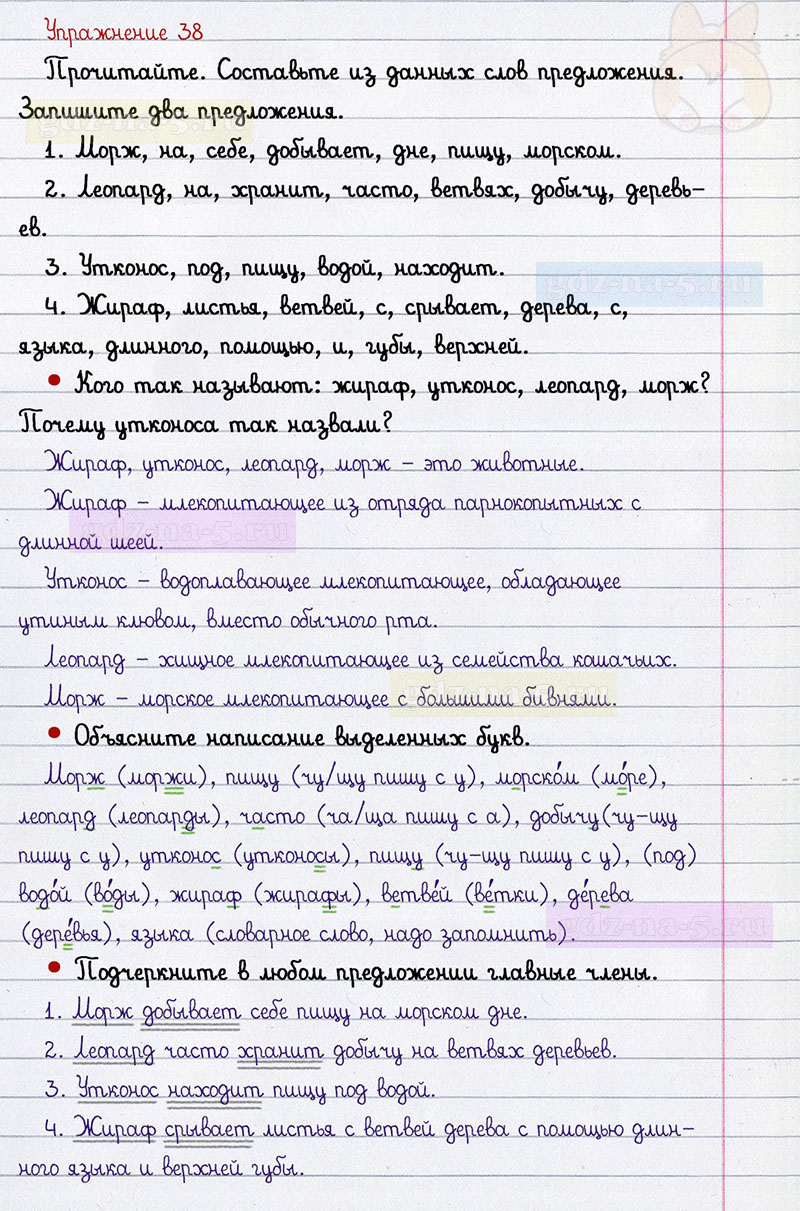 Упражнение 38
Прочитайте. Составьте из данных слов предложения.
Запишите два предложения.
gdz-na-5.ru
1. Морж, на, себе, добывает, дне, пищу, морском.
2. Леопард, на, хранит, часто, ветвях, добычу, деревь-
ев.
3. Утконос, под, пищу, водой, находит.
gdz-na-5.ru
4. Жираф, листья, ветвей, с, срывает, дерева, с,
языка, длинного, помощью, и, губы, верхней.
• Кого так называют: жираф, утконос, леопард, морж?
Почему утконоса так назвали?
Жираф, утконос, леопард, морж – это животные.
Жираф – млекопитающее из отряда парнокопытных с
gdz-na-5.ru
длинной шеей.
Утконос – водоплавающее млекопитающее, обладающее
утиным клювом, вместо обычного рта.
Леопард – хищное млекопитающее из семейства кошачьих.
Морж – морское млекопитающее с большими бивнями.
gdz-na-5.ru
• Объясните написание выделенных букв.
Морж (моржи), пищу (чу/щу пишу с у), морско́м (мо́ре),
леопард (леопарды), часто (ча/ща пишу с а), добычу(чу-щу
пишу с у), утконос (утконосы), пищу (чу-щу пишу с у), (под)
водо́й (во́ды), жираф (жирафы), ветве́й (ве́тки), де́рева
(дере́вья), языка (словарное слово, надо запомнить).
gdz-na-5.ru
• Подчеркните в любом предложении главные члены.
1. Морж добывает себе пищу на морском дне.
2. Леопард часто хранит добычу на ветвях деревьев.
3. Утконос находит пищу под водой.
4. Жираф срывает листья с ветвей дерева с помощью длин-
ного языка и верхней губы.